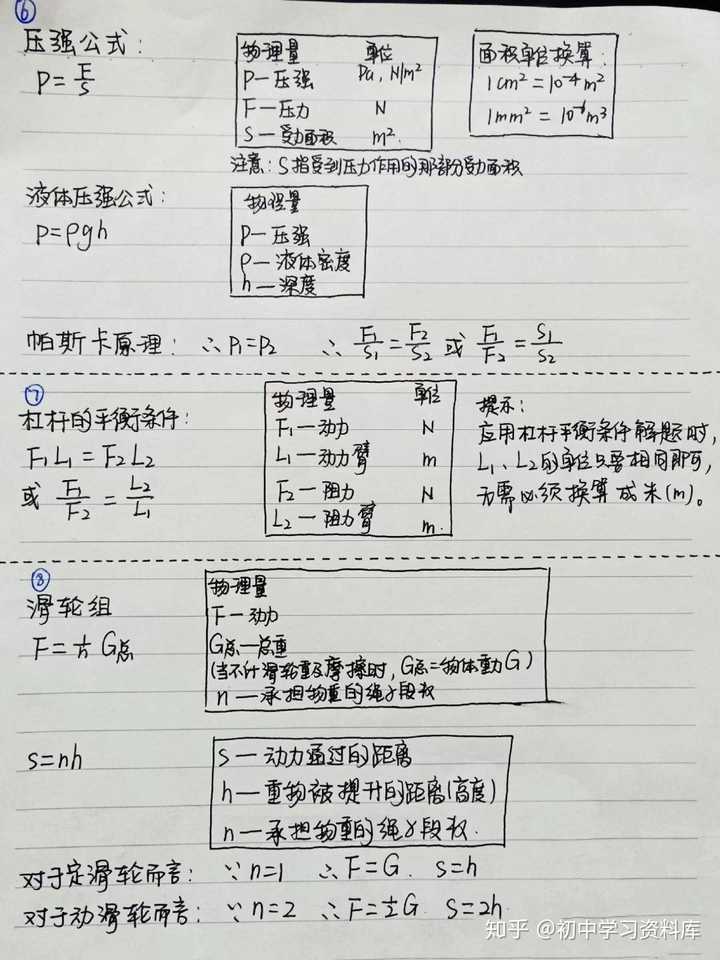 ⑥
压强公式:
P=F/S
物理量 单位
P—压强 Pa, N/m²
F—压力 N
S—受力面积 m².
注意: S指受到压力作用的那部分受力面积
面积单位换算:
1cm²=10⁻⁴m²
1mm²=10⁻⁶m³
液体压强公式:
P=ρgh
物理量
P—压强
ρ—液体密度
h—深度
帕斯卡原理: ∴P₁=P₂ ∴F₁/S₁=F₂/S₂ 或 F₁/F₂=S₁/S₂
⑦
杠杆的平衡条件:
F₁L₁=F₂L₂
或 F₁/F₂=L₂/L₁
物理量 单位
F₁—动力 N
L₁—动力臂 m
F₂—阻力 N
L₂—阻力臂 m.
提示:
应用杠杆平衡条件解题时,
L₁、L₂的单位只要相同即可,
无需必须换算成米(m)。
⑧
滑轮组
F=1/n G总
物理量
F—动力
G总—总重
(当不计滑轮重及摩擦时, G总=物体重力G)
n—承担物重的绳子段数
s=nh
S—动力通过的距离
h—重物被提升的距离(高度)
n—承担物重的绳子段数.
对于定滑轮而言: ∵n=1 ∴F=G. S=h
对于动滑轮而言: ∵n=2 ∴F=½G S=2h
知乎 @初中学习资料库